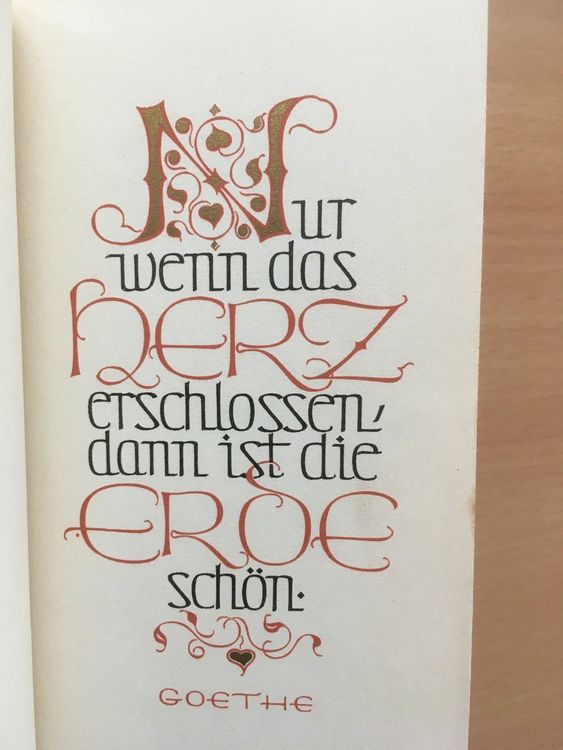 Nur
wenn das
HERZ
erschlossen,
dann ist die
ERDE
schön.
GOETHE